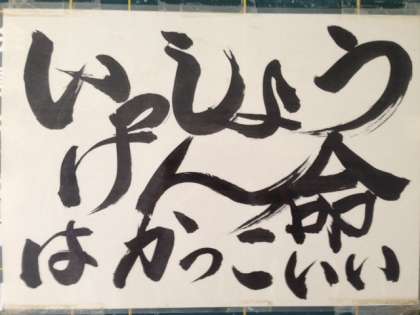 いっしょう
けん命
はかっこいい